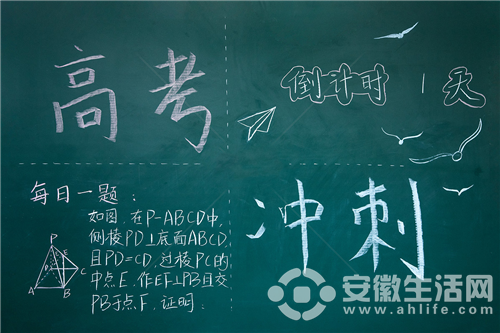 高考
倒计时 1 天
每日一题：
如图，在P-ABCD中，
侧棱PD⊥底面ABCD，
且PD=CD，过棱PC的
中点E，作EF⊥PB且交
PB于点F，证明：
P
E
F
D
C
A
B
冲刺
安徽生活网
www.ahlife.com